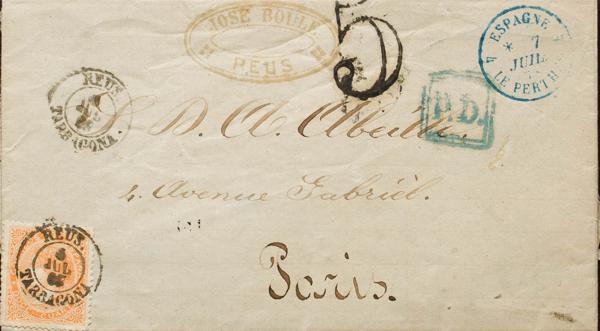 JOSE BOULE
REUS
5
ESPAGNE
7
JUIL.
LE PERTH
4
4
REUS.
TARRAGONA.
P.D.
D. A. Abeille
4. Avenue Gabriel.
Paris.
REUS.
JUL
TARRAGONA